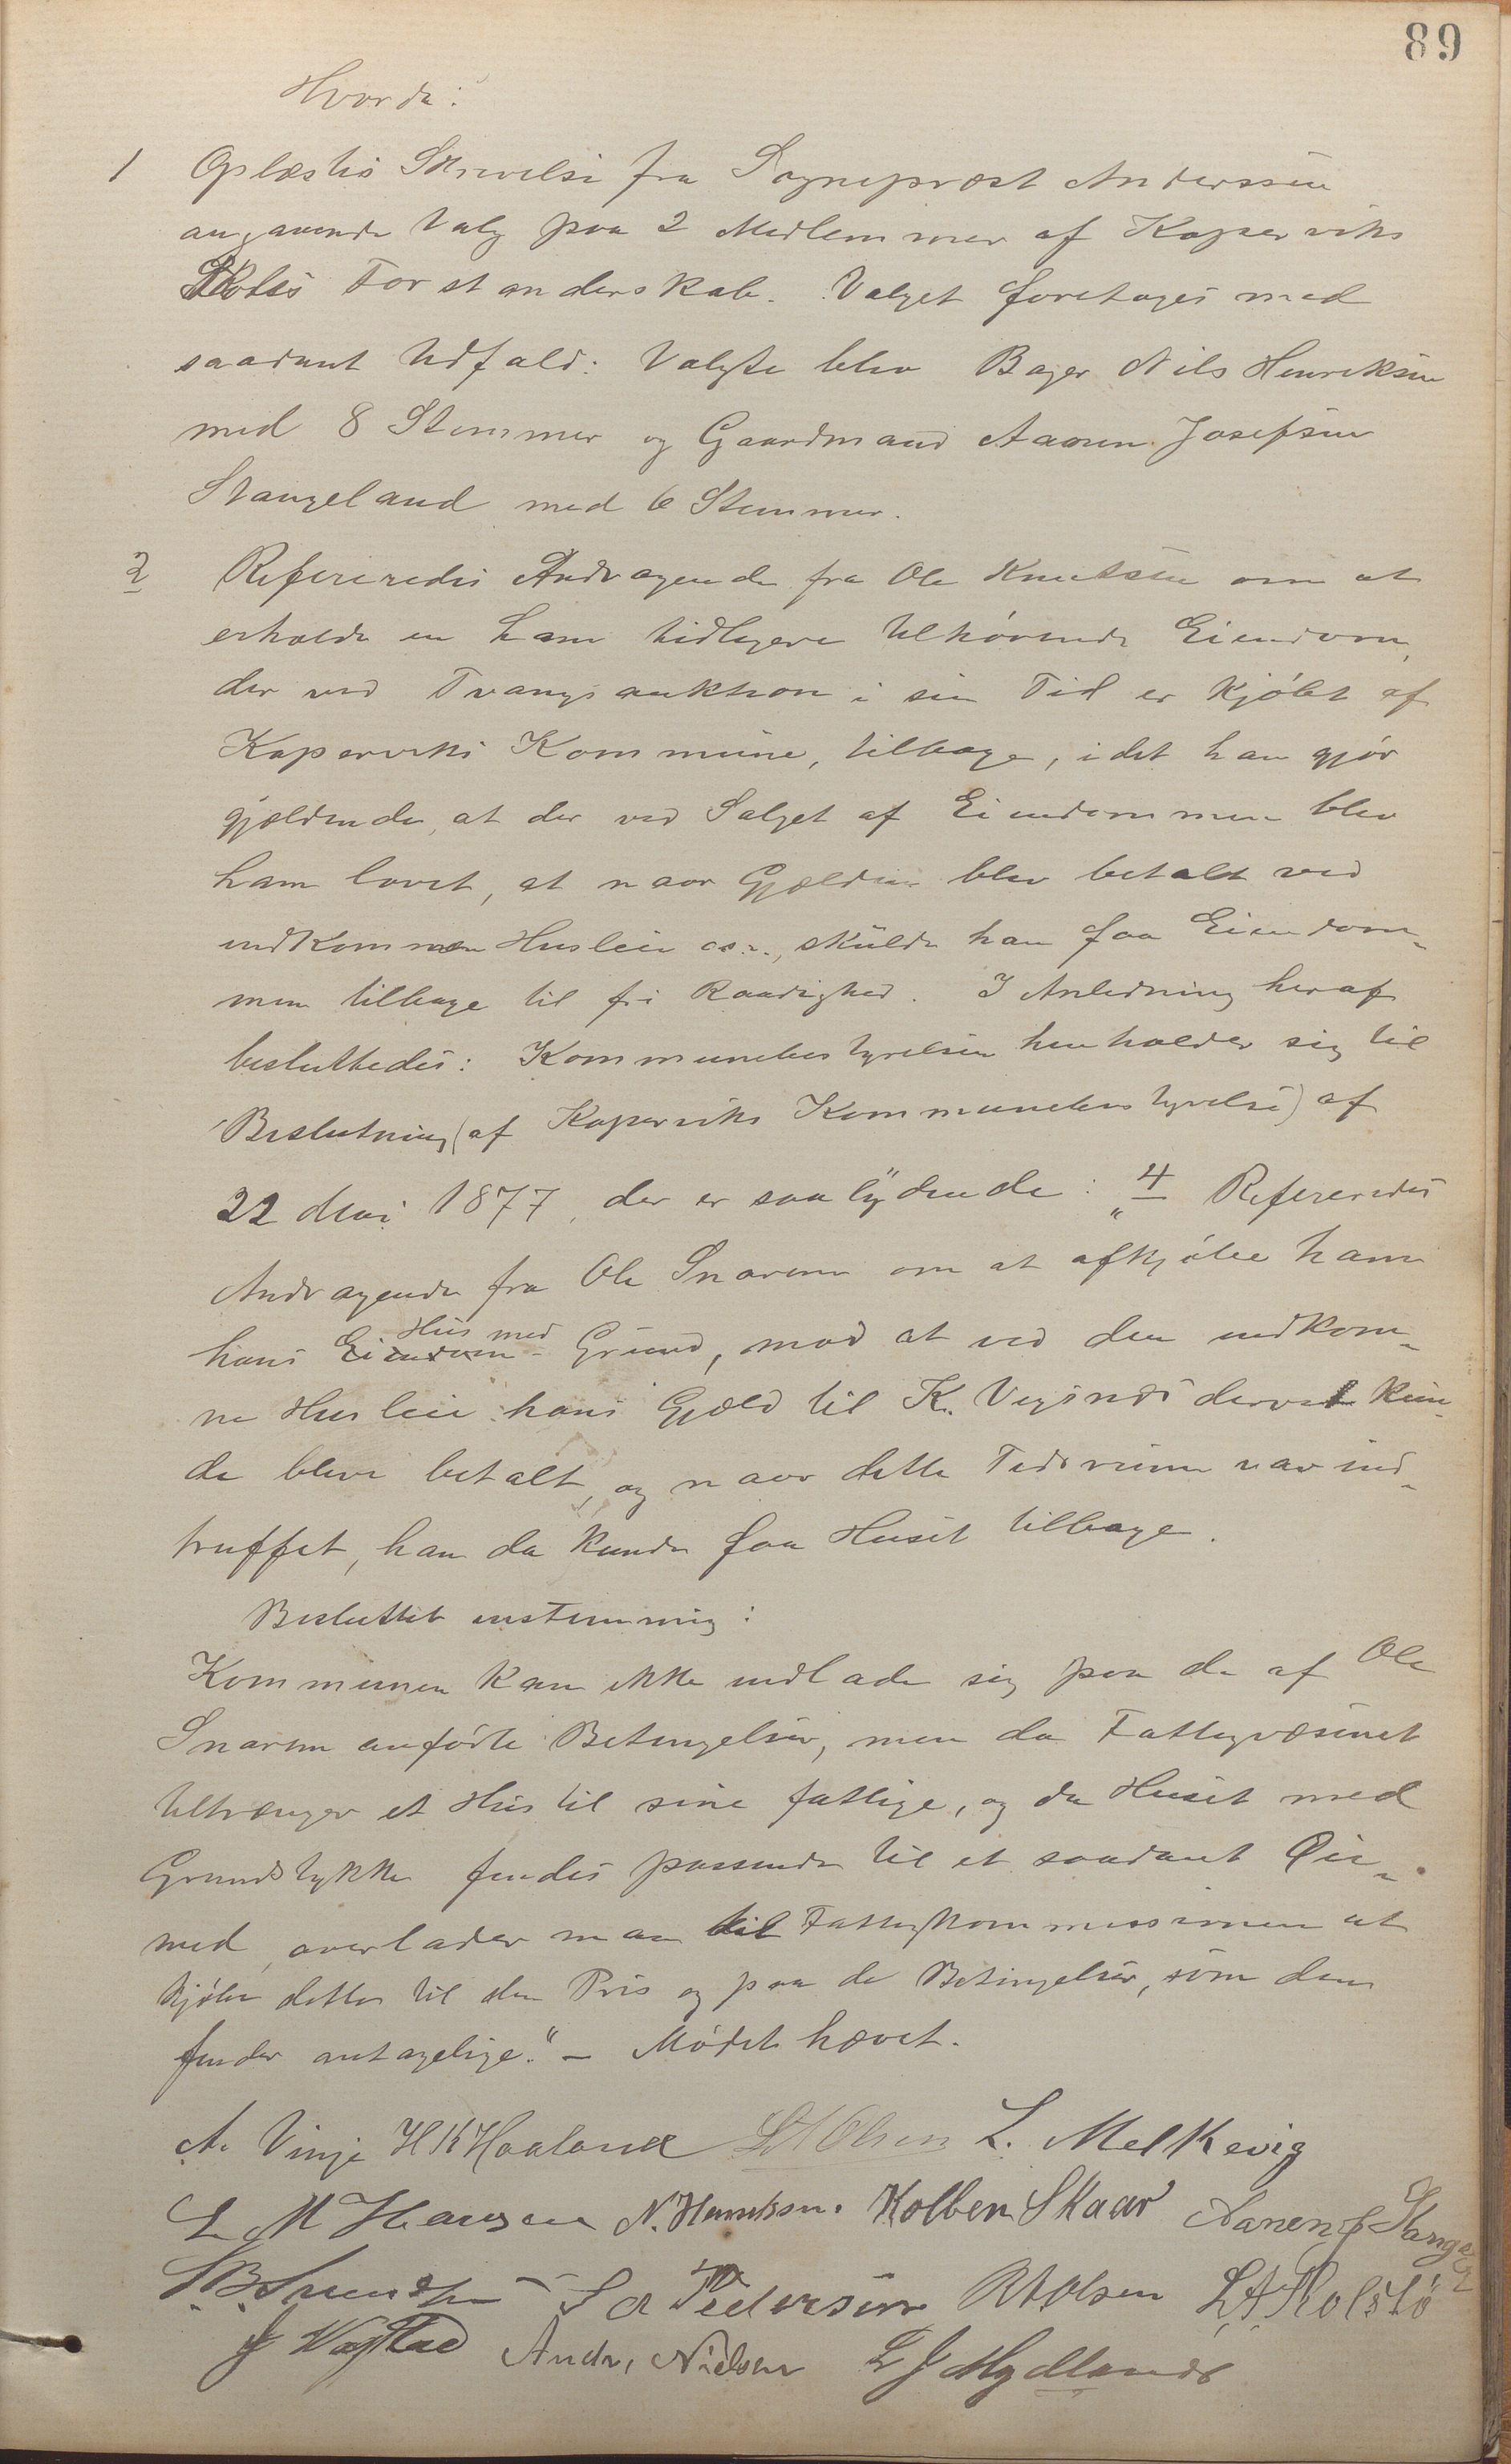 89
Hvorda:
1 Oplæstes Skrivelse fra Sognepræst Anderssen
angaaende Valg paa 2 Medlemmer af Koperviks
Skoles Forstanderskab. Valget foretoges med
saadant Udfald: Valgte blev Bager Nils Henriksen
med 8 Stemmer og Gaardmand Aanen Josefsen
Stangeland med 6 Stemmer.
2 Refereredes Andragende fra Ole Knutsen om at
erholde en ham tidligere tilhørende Eiendom,
der ved Tvangsauktion i sin Tid er kjøbt af
Koperviks Kommune, tilbage, idet han gjør
gjældende, at der ved Salget af Eiendommen blev
ham lovet, at naar Gjælden blev betalt ved
indkommen Husleie o.s.v., skulde han faa Eiendom-
men tilbage til fri Raadighed. I Anledning heraf
besluttedes: Kommunebestyrelsen henholder sig til
Beslutning (af Koperviks Kommunebestyrelse) af
22 Mai 1877, der er saa lydende: „4 Refereredes
Andragende fra Ole Snaren om at afkjøbe ham
hans Eiendom Hus med Grund, mod at ved den indkom-
ne Husleie hans Gjæld til K. Vegsnds derved kun-
de blive betalt, og naar dette Tidsrum var ind-
truffet, han da kunde faa Huset tilbage.
Besluttet enstemmig:
Kommunen kan ikke indlade sig paa de af Ole
Snaren anførte Betingelser, men da Fattigvæsenet
tiltrænger et Hus til sine fattige, og da Huset med
Grundstykke findes passende til et saadant Øie-
med, overlader man til Fattigkommissionen at
kjøbe dette til den Pris og paa de Betingelser, som den
finder antagelige." - Mødet hævet.
A. Vinje H K Haaland L A Olsen L. Melkevig
L M Hansen N. Henriksen. Kolben Skaar Aanen J Stangeland
S. B. L A Pedersen R A Olsen L A Kolstø
J VaAndr. Nielsen L J Mydland